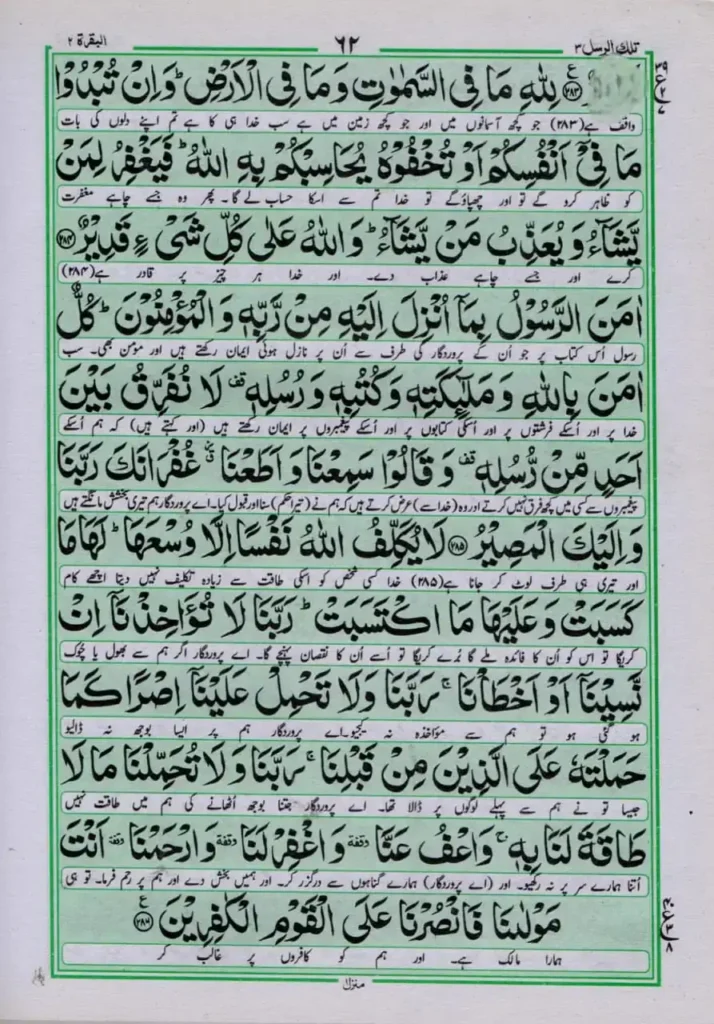 تلك الرسل ٣ ٦٢ البقرة ٢
لِلّٰهِ مَا فِی السَّمٰوٰتِ وَمَا فِی الْاَرْضِ ؕ وَاِنْ تُبْدُوْا
واقف ہے (۲۸۳) جو کچھ آسمانوں میں اور جو کچھ زمین میں ہے سب خدا ہی کا ہے تم اپنے دلوں کی بات
مَا فِیْۤ اَنْفُسِكُمْ اَوْ تُخْفُوْهُ یُحَاسِبْكُمْ بِهِ اللّٰهُ ؕ فَیَغْفِرُ لِمَنْ
کو ظاہر کرو گے تو اور چھپاؤگے تو خدا تم سے اسکا حساب لے گا۔ پھر وہ جسے چاہے مغفرت
یَّشَآءُ وَ یُعَذِّبُ مَنْ یَّشَآءُ ؕ وَاللّٰهُ عَلٰی كُلِّ شَیْءٍ قَدِیْرٌ ۲۸۴
کرے اور جسے چاہے عذاب دے۔ اور خدا ہر چیز پر قادر ہے (۲۸۴)
اٰمَنَ الرَّسُوْلُ بِمَاۤ اُنْزِلَ اِلَیْهِ مِنْ رَّبِّهٖ وَ الْمُؤْمِنُوْنَ ؕ كُلٌّ
رسول اُس کتاب پر جو اُن کے پروردگار کی طرف سے اُن پر نازل ہوئی ایمان رکھتے ہیں اور مومن بھی۔ سب
اٰمَنَ بِاللّٰهِ وَ مَلٰٓئِكَتِهٖ وَكُتُبِهٖ وَ رُسُلِهٖ قف لَا نُفَرِّقُ بَیْنَ
خدا پر اور اُسکے فرشتوں پر اور اُسکی کتابوں پر اور اُسکے پیغمبروں پر ایمان رکھتے ہیں (اور کہتے ہیں) کہ ہم اُسکے
اَحَدٍ مِّنْ رُّسُلِهٖ قف وَ قَالُوْا سَمِعْنَا وَ اَطَعْنَا غُفْرَانَكَ رَبَّنَا
پیغمبروں سے کسی میں کچھ فرق نہیں کرتے اور وہ (خدا سے) عرض کرتے ہیں کہ ہم نے (تیرا حکم) سنا اور قبول کیا۔ اے پروردگار ہم تیری بخشش مانگتے ہیں
وَ اِلَیْكَ الْمَصِیْرُ ۲۸۵ لَا یُكَلِّفُ اللّٰهُ نَفْسًا اِلَّا وُسْعَهَا ؕ لَهَا مَا
اور تیری ہی طرف لوٹ کر جانا ہے (۲۸۵) خدا کسی شخص کو اسکی طاقت سے زیادہ تکلیف نہیں دیتا اچھے کام
كَسَبَتْ وَ عَلَیْهَا مَا اكْتَسَبَتْ ؕ رَبَّنَا لَا تُؤَاخِذْنَاۤ اِنْ
کریگا تو اس کو اُن کا فائدہ ملے گا بُرے کریگا تو اُسے اُن کا نقصان پہنچے گا۔ اے پروردگار اگر ہم سے بھول یا چوک
نَّسِیْنَاۤ اَوْ اَخْطَاْنَا ۚ رَبَّنَا وَلَا تَحْمِلْ عَلَیْنَاۤ اِصْرًا كَمَا
ہو گئی ہو تو ہم سے مؤاخذہ نہ کیجیو۔ اے پروردگار ہم پر ایسا بوجھ نہ ڈالیو
حَمَلْتَهٗ عَلَی الَّذِیْنَ مِنْ قَبْلِنَا ۚ رَبَّنَا وَ لَا تُحَمِّلْنَا مَا لَا
جیسا تو نے ہم سے پہلے لوگوں پر ڈالا تھا۔ اے پروردگار جتنا بوجھ اُٹھانے کی ہم میں طاقت نہیں
طَاقَةَ لَنَا بِهٖ ۚ وَاعْفُ عَنَّا وقفة وَاغْفِرْ لَنَا وقفة وَارْحَمْنَا وقفة اَنْتَ
اُتنا ہمارے سر پر نہ رکھیو۔ اور (اے پروردگار) ہمارے گناہوں سے درگزر کر۔ اور ہمیں بخش دے اور ہم پر رحم فرما۔ تو ہی
مَوْلٰىنَا فَانْصُرْنَا عَلَی الْقَوْمِ الْكٰفِرِیْنَ ۲۸۶
ہمارا مالک ہے۔ اور ہم کو کافروں پر غالب کر
منزل